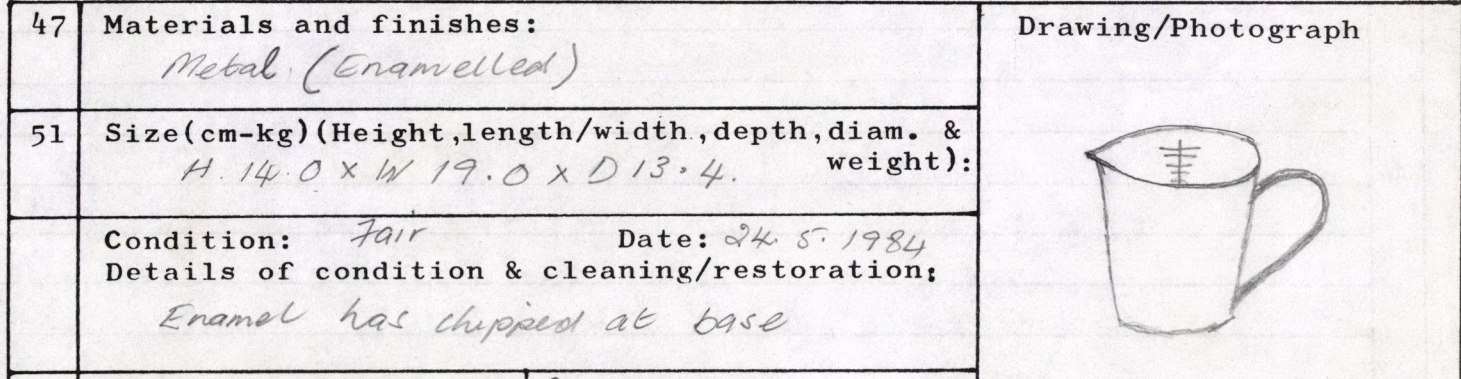 47 Materials and finishes:
Metal. (Enamelled)
51 Size(cm-kg)(Height,length/width,depth,diam. &
weight):
H. 14.0 x W 19.0 x D 13.4.
Condition: Fair Date: 24. 5. 1984
Details of condition & cleaning/restoration:
Enamel has chipped at base
Drawing/Photograph